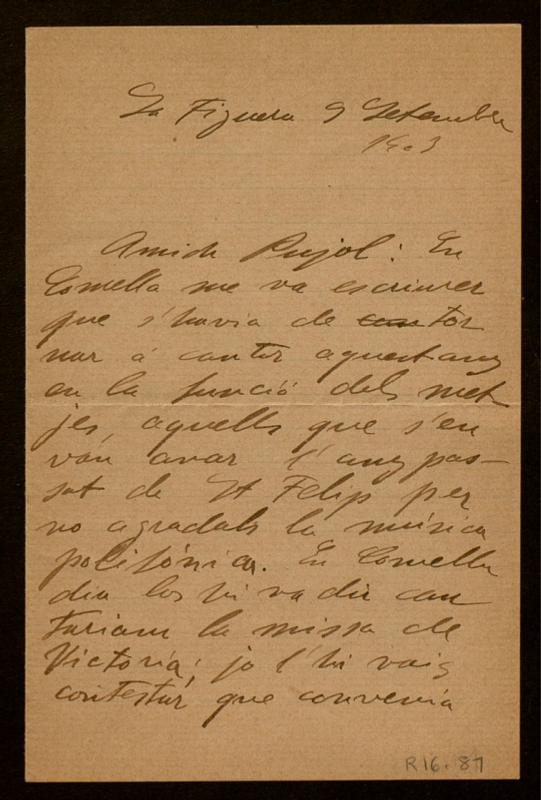 La Figuera 9 Setembre
1903
Amich Pujol: En
Comella me va escriurer
que s'havia de can tor
nar á cantar aquest any
en la funció dels met
jes, aquells que s'en
van anar l'any pas-
sat de St Felip per
no agradals la música
polifónica. En Comella
diu los hi va dir can
tariam la missa de
Victoria; jo l'hi vaig
contestar que convenia
R16.87